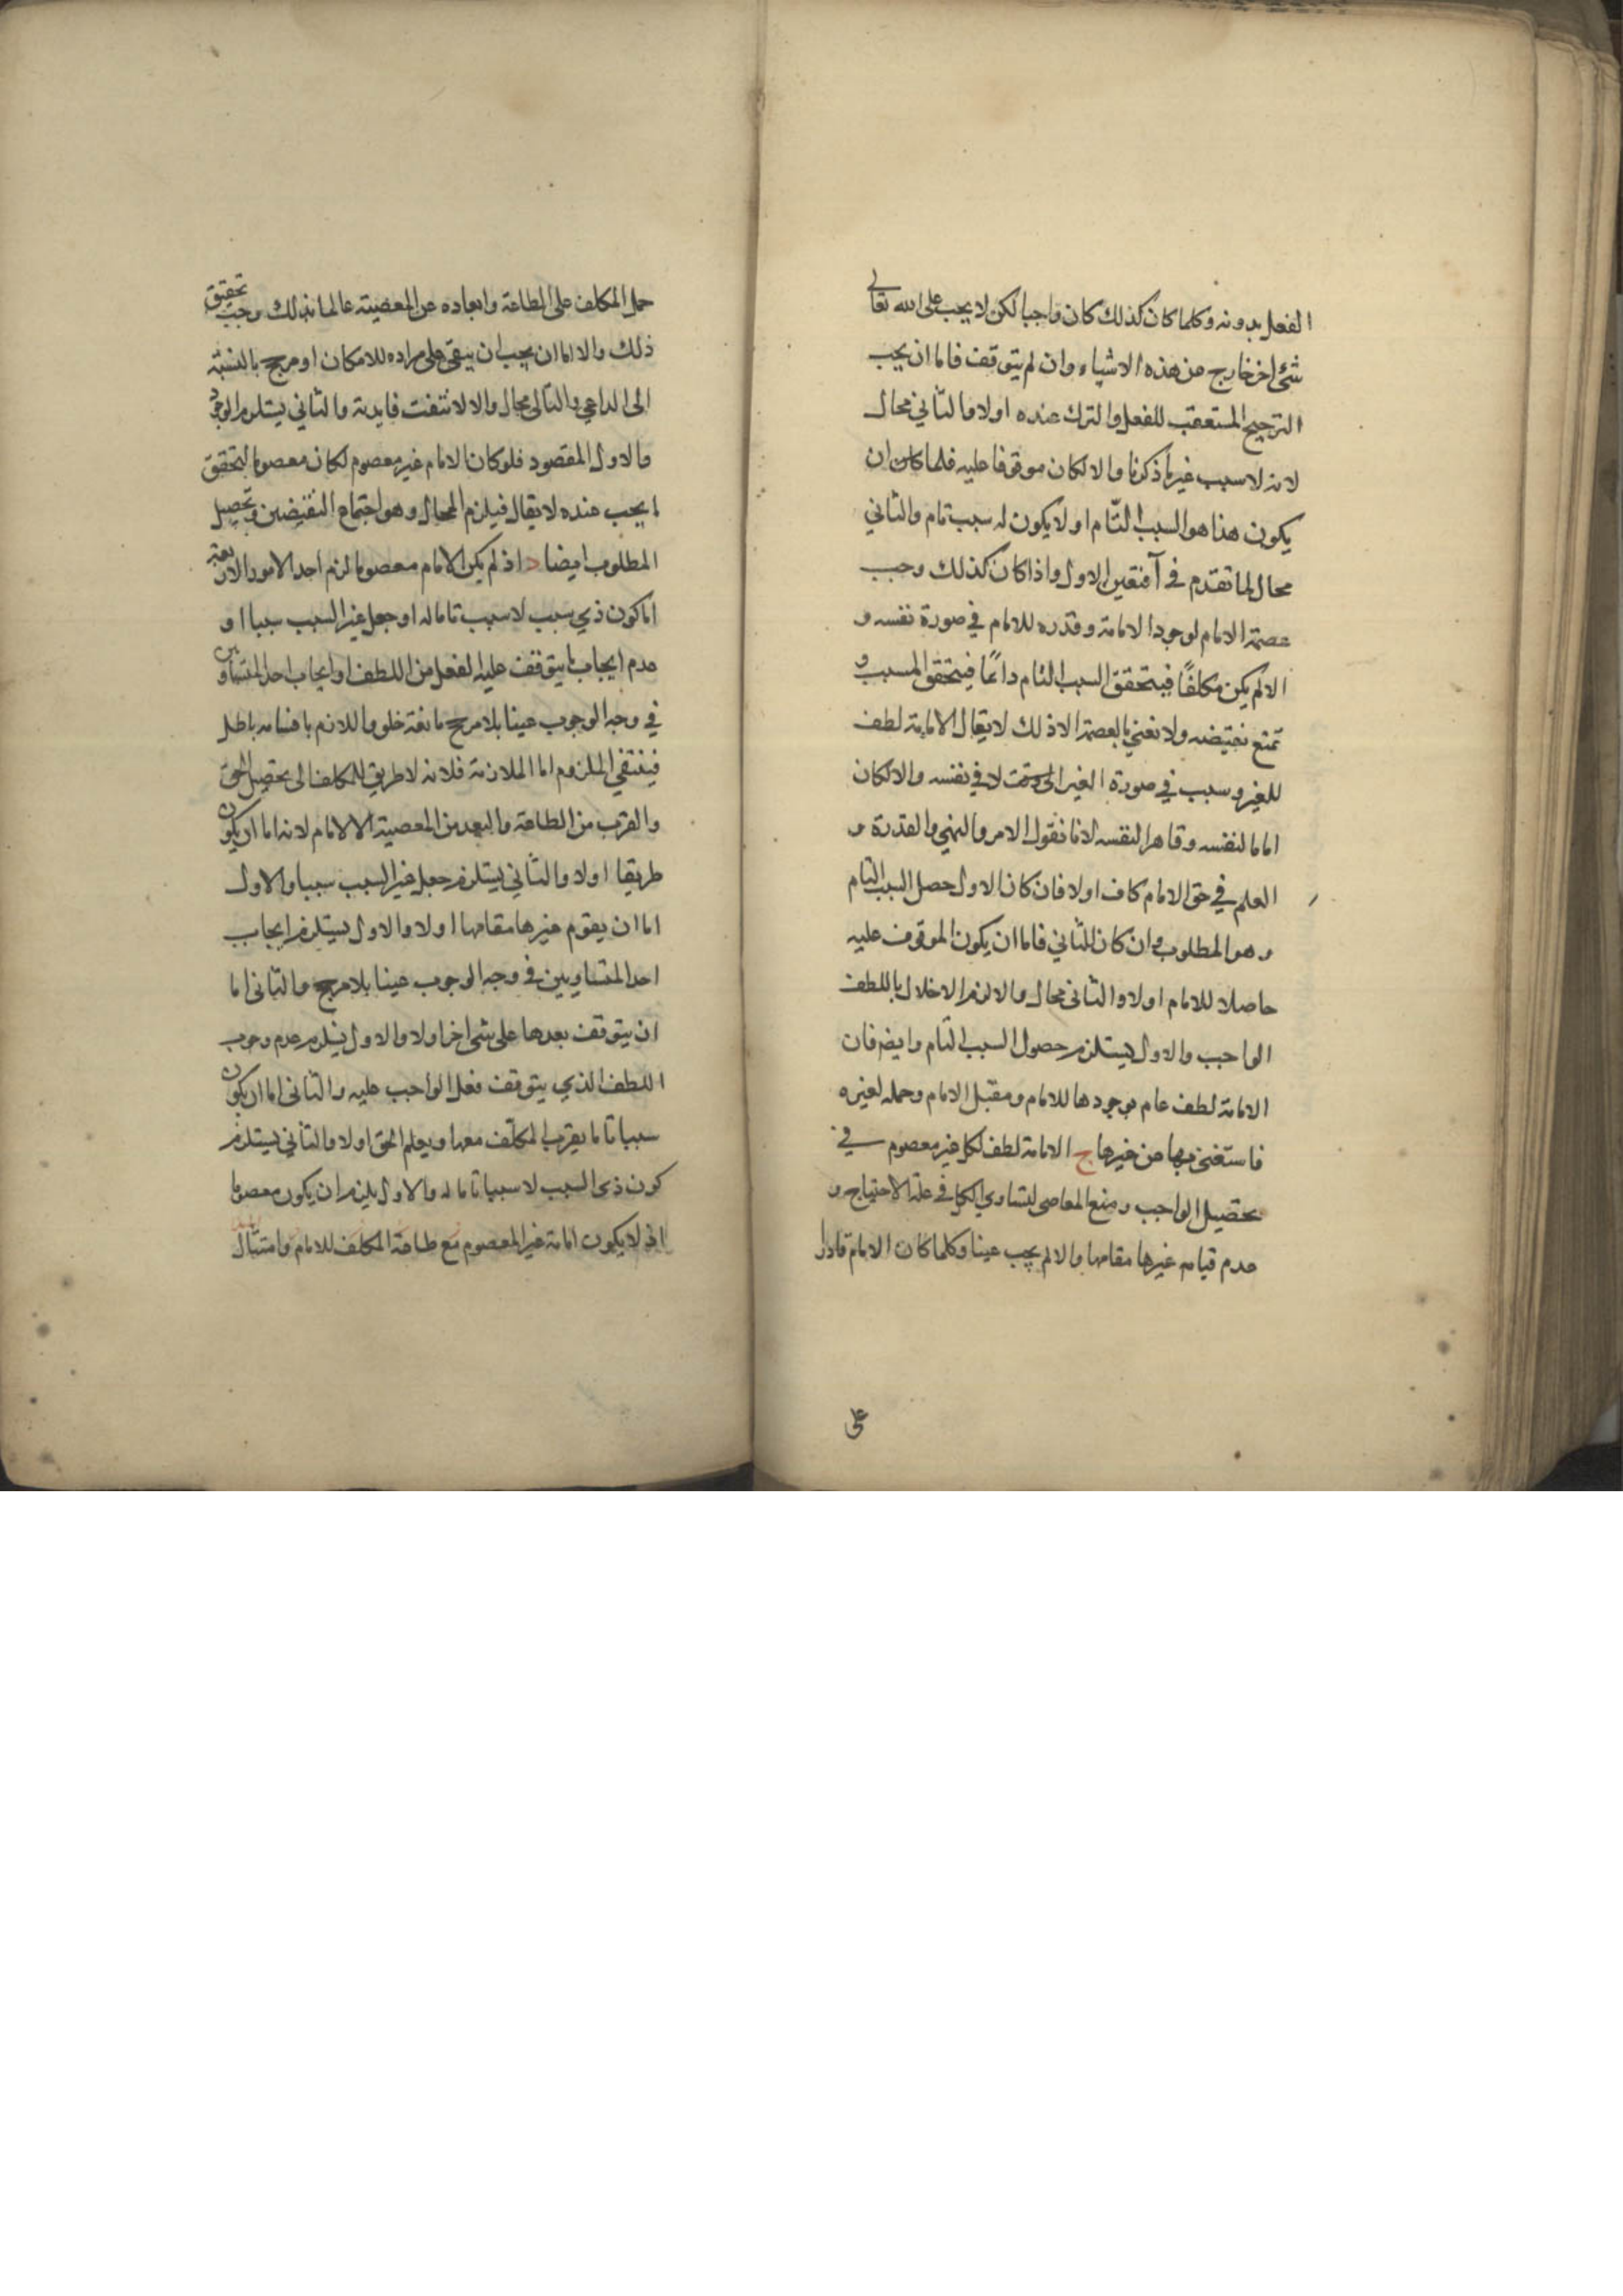 الفعل بدونه وكلما كان كذلك كان واجبا لكن لا يجب على الله تعالى
شئ اخر خارج من هذه الاشياء وان لم يتوقف فاما ان يجب
الترجيح المستعقب للفعل والترك عنده اولا والثاني محال
لانه لا سبب غير ما ذكرنا والا لكان موقوفا عليه فلما كان ان
يكون هذا هو السبب التّام او لا يكون له سبب تام والثاني
محال لما تقدم في الاول واذا كان كذلك وجب
عصمة الامام لوجود الامامة وقدره للامام في صورة نفسه و
الا لم يكن مكلفًا فيتحقق السبب التام دائمًا فيتحقق المسبب و
تمتع نقيضه ولا نعني بالعصمة الا ذلك لا يقال الامامة لطف
للغير وسبب في صورة الغير التي وقعت لا في نفسه والا لكان
اماما لنفسه وقاهرا لنفسه لانا نقول الامر والنهي والقدرة و
العلم في حق الامام كاف اولا فان كان الاول حصل السبب التام
وهو المطلوب وان كان الثاني فاما ان يكون الموقوف عليه
حاصلا للامام اولا والثاني محال والا لزم الاخلال باللطف
الواجب والاول يستلزم حصول السبب التام وايضا فان
الامامة لطف عام بوجودها للامام و الامام وحمله لغيره
فاستغنى بها من غيرها ج الامامة لطف لكل غير معصوم في
تحصيل الواجب ومنع المعاصي لتساوي الكل في علة الاحتياج و
عدم قيام غيرها مقامها والا لم يجب عينا وكلما كان الامام قادرا
على
حمل المكلف على الطاعة وابعاده عن المعصية عالما بذلك وجب تحقيق
ذلك والا اما ان يجب ان يبقى على مراده للامكان او مرجح بالنسبة
الى الداعي والتالي محال والا لانتفت فايدته والثاني يستلزم الوجود
والاول المقصود فلو كان الامام غير معصوم لكان معصوما لتحقق
ما يجب عنده لا يقال فيلزم المحال وهو اجتماع النقيضين وتحصيل
المطلوب ايضا د اذ لم يكن الامام معصوما لزم احد الامور الاربعة
اما كون ذي سبب لا سبب تاما له او جعل غير السبب سببا او
عدم ايجاب ما يتوقف عليه الفعل من اللطف او ايجاب احد المتساويين
في وجه الوجوب عينا بلا مرجح مانعة خلو واللازم باقسامه باطل
فينتفي الملزوم اما الملازمة فلانه لا طريق للمكلف الى تحصيل الحق
والقرب من الطاعة والبعد من المعصية الا الامام لانه اما ان يكون
طريقا اولا والثاني يستلزم جعل غير السبب سببا والاول
اما ان يقوم غيرها مقامها اولا والاول يستلزم ايجاب
احد المتساويين في وجه الوجوب عينا بلا مرجح والثاني اما
ان يتوقف بعدها على شئ اخر اولا والاول يستلزم عدم وجوب
اللطف الذي يتوقف فعل الواجب عليه والثاني اما ان يكون
سببا تاما يقرب المكلّف معها ويعلم الحق اولا والثاني يستلزم
كون ذي السبب لا سببا تاما له والاول يلزم ان يكون معصوما
اذ لا يكون امامة غير المعصوم مع طاعة المكلف للامام وامتثال